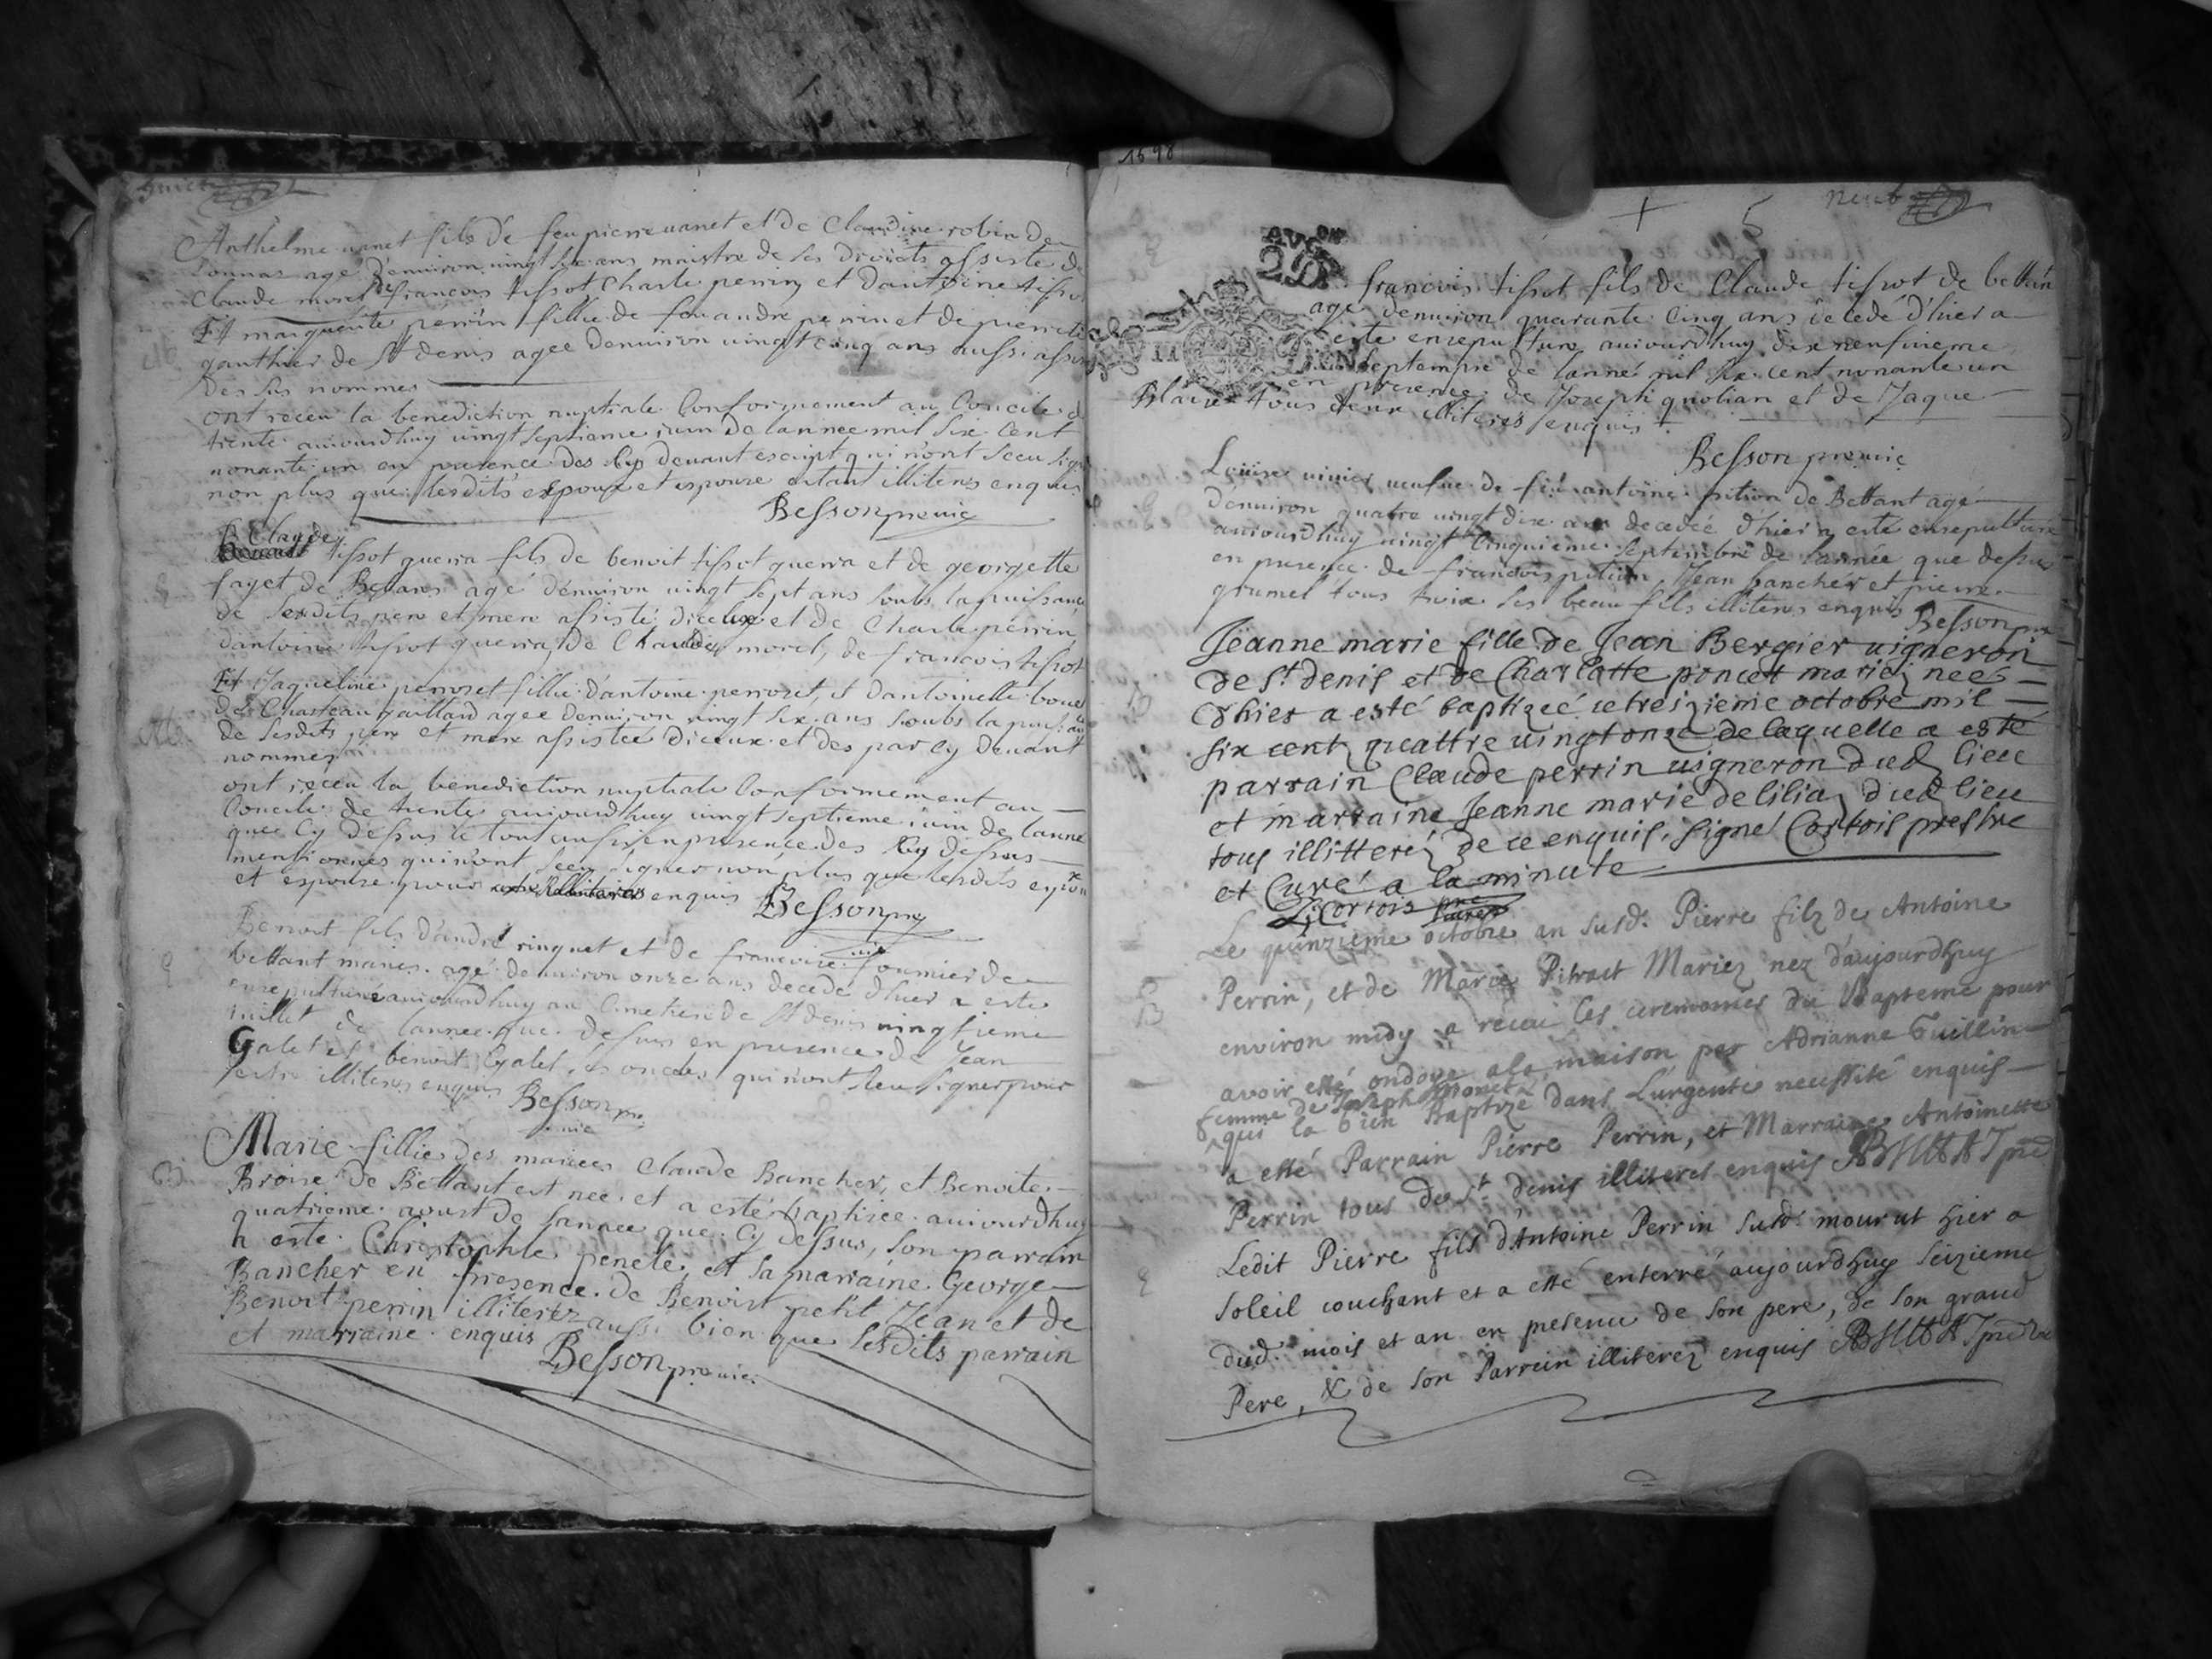 huict
Anthelme vanet fils de feu pierre vanet et de Claudine robin de
Lonnas agé d'environ vingt six ans maistre de ses droicts assisté de
Claude morel de francois tissot Charle perrin et dantoine tissot
Et marguerite perrin fillie de feu andre perrin et de pierrette
gauthier de St denis agee denviron vingt cinq ans aussi assis
des sus nommes
ont receu la benediction nuptiale Conformement au Concile de
trente aujourdhuy vingt septieme juin de lannee mil six cent
nonante un en presence des cy devant escript qui n'ont sceu sign
non plus que lesdits espoux et espouse estant illiteres enquis
Besson premie
Claude
Benoist tissot guerra fils de benoit tissot guerra et de georgette
fayet de Bettans agé d'environ vingt sept ans soubs la puissance
de sesdits pere et mere assisté diceluy et de Charle perrin
dantoine tissot guerra, de Claude morel, de francois tissot
Et Jaqueline perroset fillie d'antoine perroset, et dantoinette bouet
de Chasteau gaillard agee denviron vingt six ans soubs la puiss
de sesdits pere et mere assistee diceux et des par cy devant
nommes
ont receu la benediction nuptiale Conformement au
Concile de trente aujourdhuy vingt septieme juin de lanne
que cy dessus le tout aussi en presence des cy dessus
mentionnes qui n'ont sceu signer non plus que lesdits espoux
et espouse pour estre illiteres enquis Besson
Benoist fils d'andré ringuet et de francoise fournier de
bettant maries agé denviron onze ans decede d'hier a este
ensepulturé aujourdhuy au Cimetiere de St denis vingtieme
juillet de lannee que dessus en presence de Jean
Galet et benoit Galet ses oncles qui n'ont sceu signer pour
estre illiteres enquis Besson
Marie fillie des maries Claude Bancher, et Benoite
Broise de Bettant est nee et a esté baptisee aujourdhuy
quatrieme aoust de lannee que cy dessus, son parrain
a esté Christophle penele, et sa marraine George
Bancher en presence de Benoist petit Jean et de
Benoit perrin illiterez aussi bien que lesdits parrain
et marraine enquis Besson premie
1698
5
neuf
francois tissot fils de Claude tissot de bettan
agé denviron quarante cinq ans decedé d'hier a
esté ensepulturé aujourdhuy dix neufvieme
septempre de lanné mil six cent nonante un
en presence de Joseph guolian et de Jaque
Blaise tous deux illiteres enquis
Besson premie
Louise vivier veufve de feu antoine pition de Bettant agé
d'environ quatre vingt dix ans decedeé d'hier a esté ensepulturé
aujourdhuy vingt Cinquieme septembre de lannée que dessus
en presence de francois pition, Jean bancher et pierre
grumel tous troix ses beau fils illiteres enquis Besson
Jeanne marie fille de Jean Bergier vigneron
de St denis et de Charlotte poncet mariez neé
d'hier a esté baptizeé ce treizieme octobre mil
six centz quattre vingt onze de laquelle a esté
parrain Claude perrin vigneron dud lieu
et marraine Jeanne marie delilia dud lieu
tous illitterez de ce enquis, signé Cortois prestre
et Curé a la minute
Cortois pre Curé
Le quinzieme octobre an susd. Pierre filz de Antoine
Perrin, et de Marie Pitrait Mariez nez d'aujourdhuy
environ midy a receu les ceremonies du Bapteme pour
avoir esté ondoyé a la maison par Adrianne Guillin
femme de Joseph Monet
qui la bien Baptizé dans L'urgente necessité enquis
a esté Parrain Pierre Perrin, et Marraine Antoinette
Perrin tous de St denis illiteres enquis
Ledit Pierre fils d'Antoine Perrin susd. mourut hier a
soleil couchant et a esté enterré aujourdhuy seizieme
dud. mois et an en presence de son pere, de son grand
Pere, & de son Parrein illiterez enquis